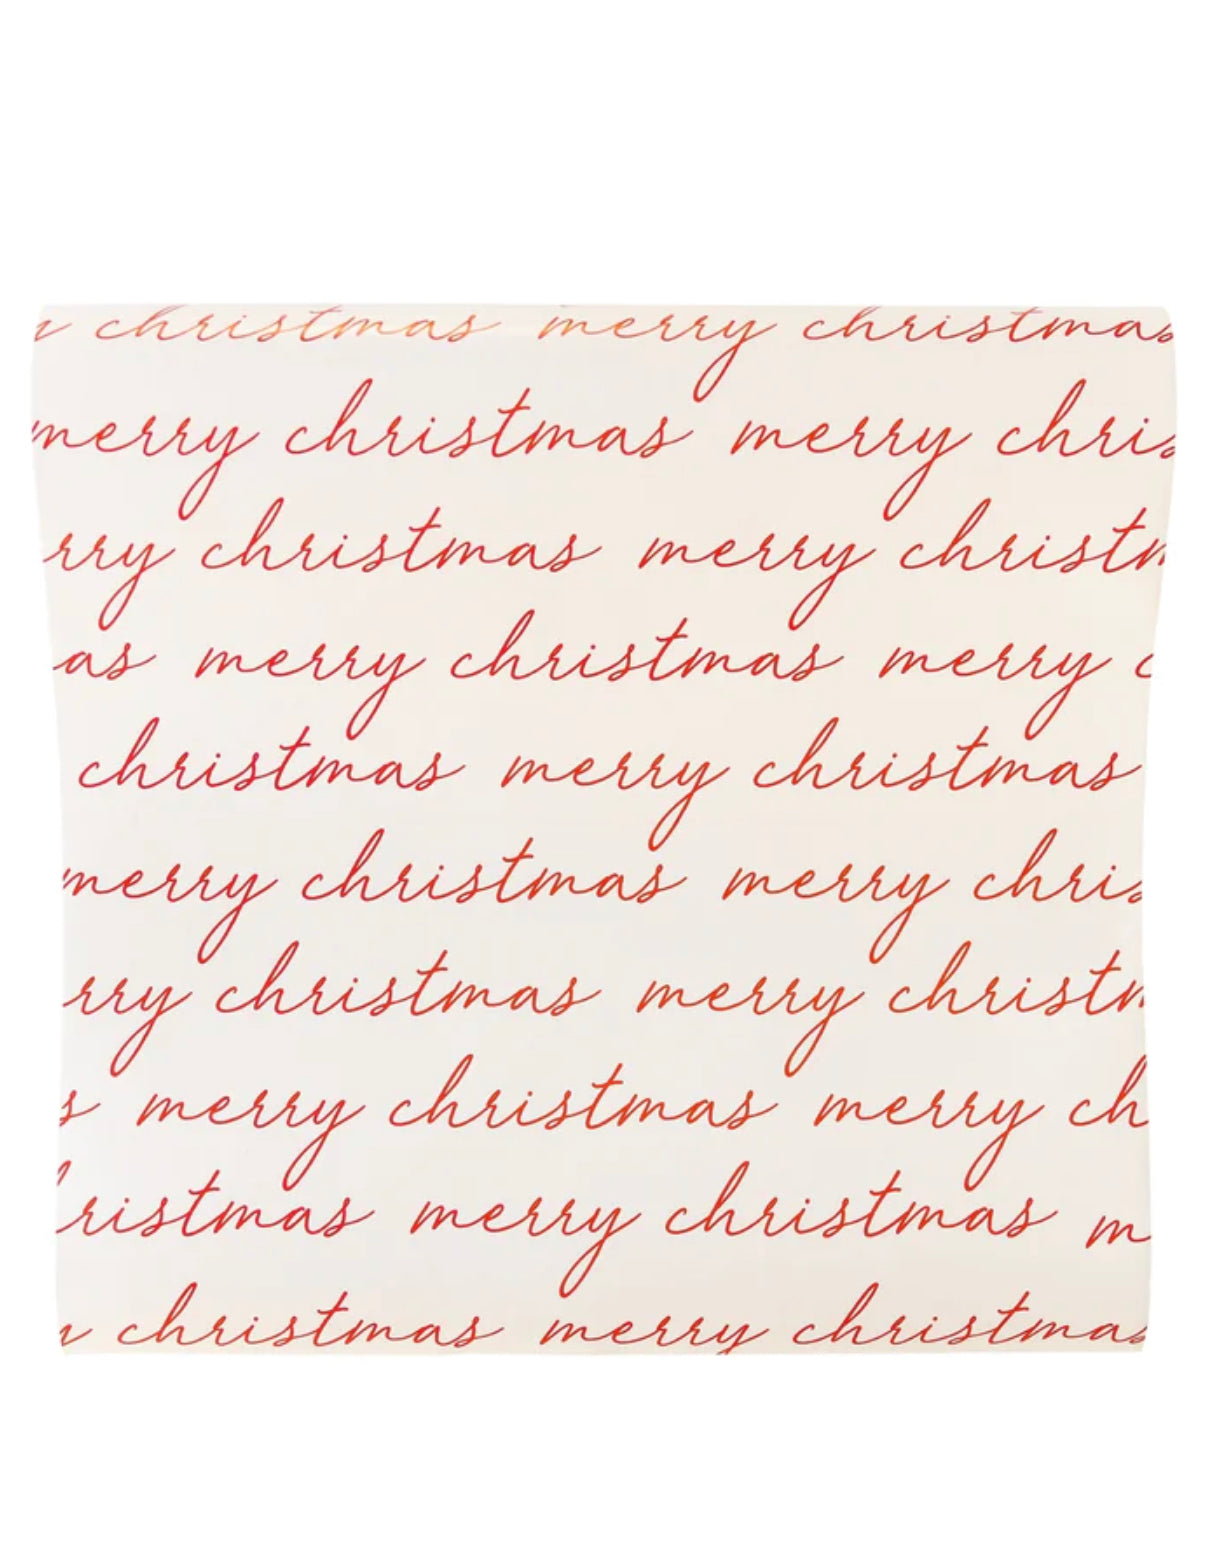 christmas merry christmas
merry christmas merry chris
rry christmas merry christm
as merry christmas merry c
christmas merry christmas
merry christmas merry chris
rry christmas merry christm
s merry christmas merry ch
ristmas merry christmas m
christmas merry christmas